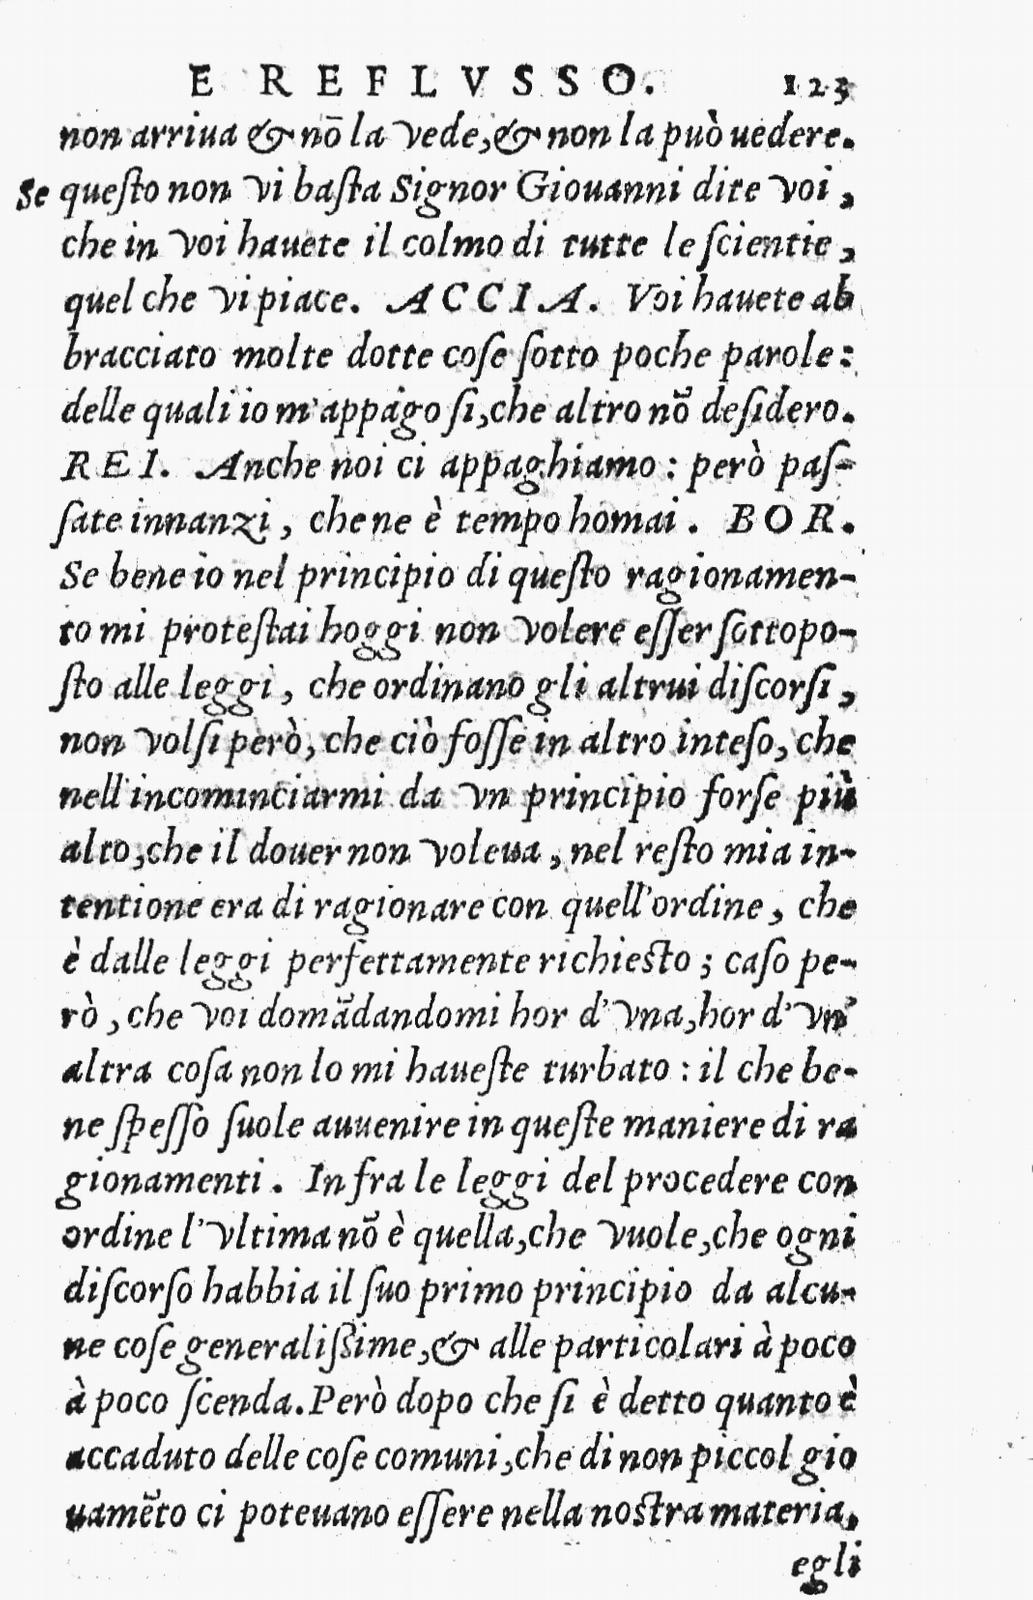 E REFLVSSO. 123
non arriua & nō la vede, & non la può uedere.
Se questo non vi basta Signor Giouanni dite voi,
che in voi hauete il colmo di tutte le scientie,
quel che vi piace. ACCIA. Voi hauete ab
bracciato molte dotte cose sotto poche parole:
delle quali io m'appago sì, che altro nō desidero.
REI. Anche noi ci appaghiamo: però pas-
sate innanzi, che ne è tempo homai. BOR.
Se bene io nel principio di questo ragionamen-
to mi protestai hoggi non volere esser sottopo-
sto alle leggi, che ordinano gli altrui discorsi,
non volsi però, che ciò fosse in altro inteso, che
nell'incominciarmi da vn principio forse più
alto, che il douer non voleua, nel resto mia in-
tentione era di ragionare con quell'ordine, che
è dalle leggi perfettamente richiesto; caso pe-
rò, che voi domādandomi hor d'vna, hor d'vn'
altra cosa non lo mi haueste turbato: il che be-
ne spesso suole auuenire in queste maniere di ra
gionamenti. Infra le leggi del procedere con
ordine l'vltima nō è quella, che vuole, che ogni
discorso habbia il suo primo principio da alcu-
ne cose generalissime, & alle particolari à poco
à poco scenda. Però dopo che si è detto quanto è
accaduto delle cose comuni, che di non piccol gio
uamēto ci poteuano essere nella nostra materia,
egli